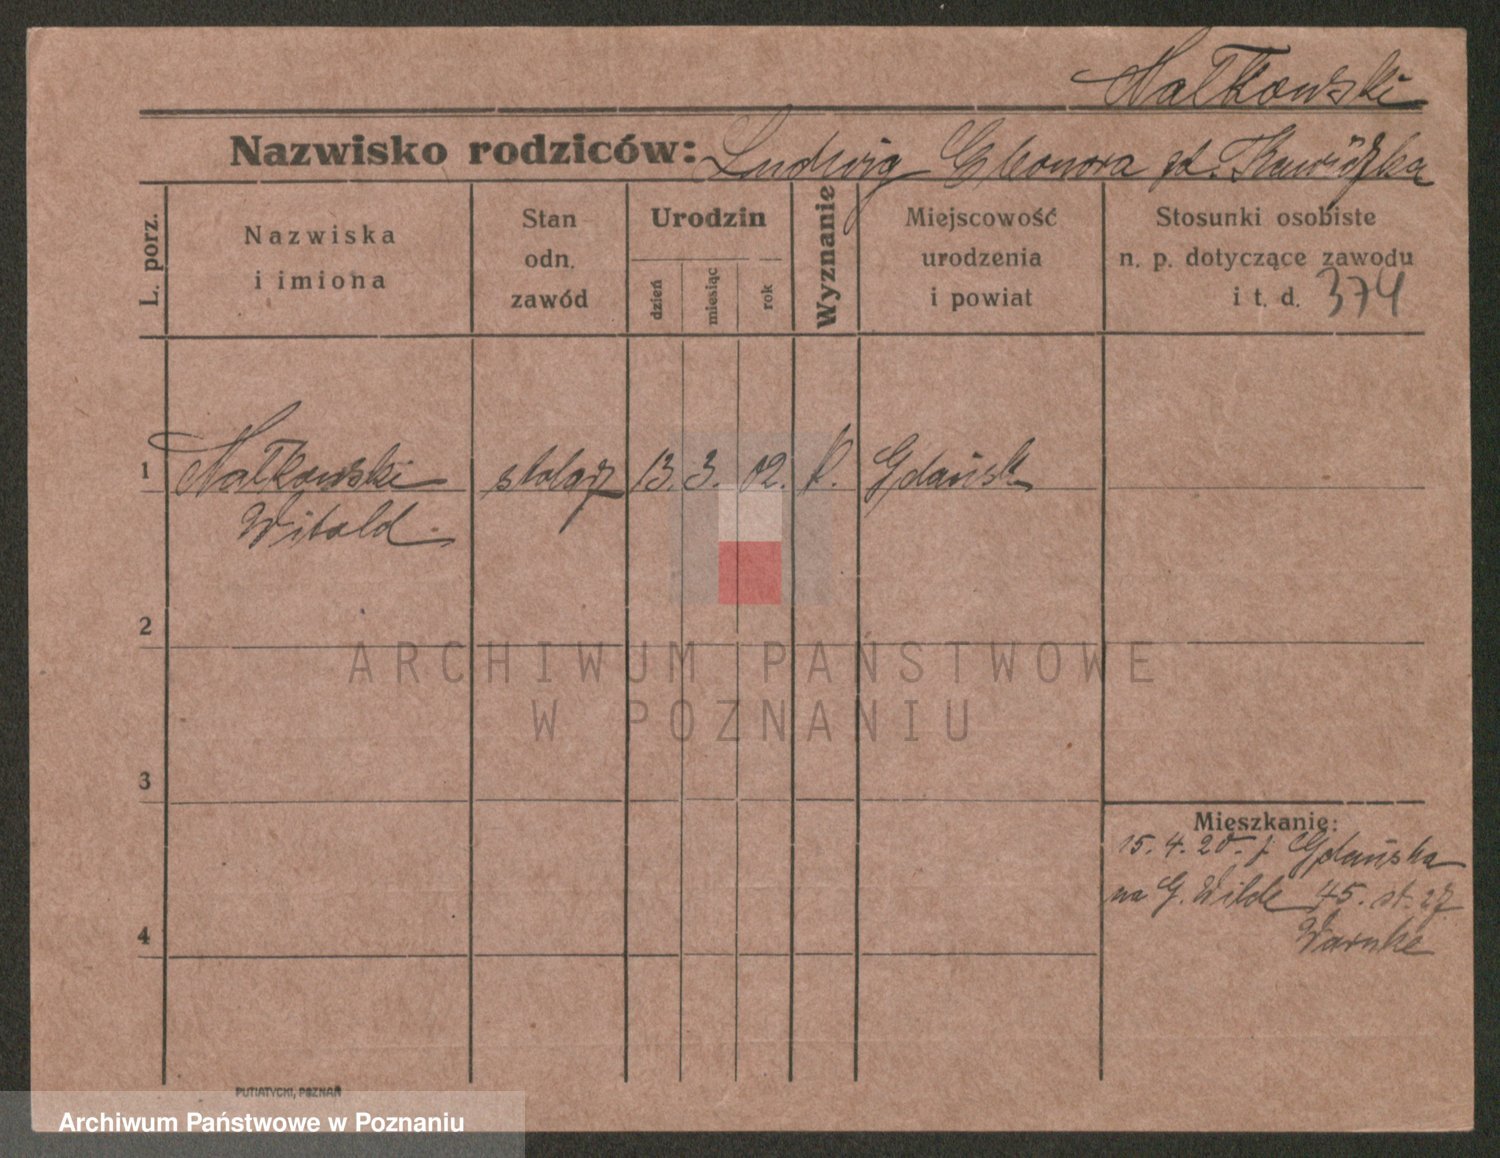 Nałkowski
Nazwisko rodziców: Ludwig Eleonora zd.
L. porz.
Nazwiska
i imiona
Stan
odn.
zawód
Urodzin
dzień
miesiąc
rok
Wyznanie
Miejscowość
urodzenia
i powiat
Stosunki osobiste
n. p. dotyczące zawodu
i t. d. 374
1 Nałkowski stolarz 13. 3. 02. k. Gdańsk
Witold
2
ARCHIWUM PAŃSTWOWE
W POZNANIU
3
Mieszkanie:
15. 4. 20. z Gdańska
na G. Wilde 45. st. 27
Warnke
4
PUTIATYCKI, POZNAŃ
Archiwum Państwowe w Poznaniu